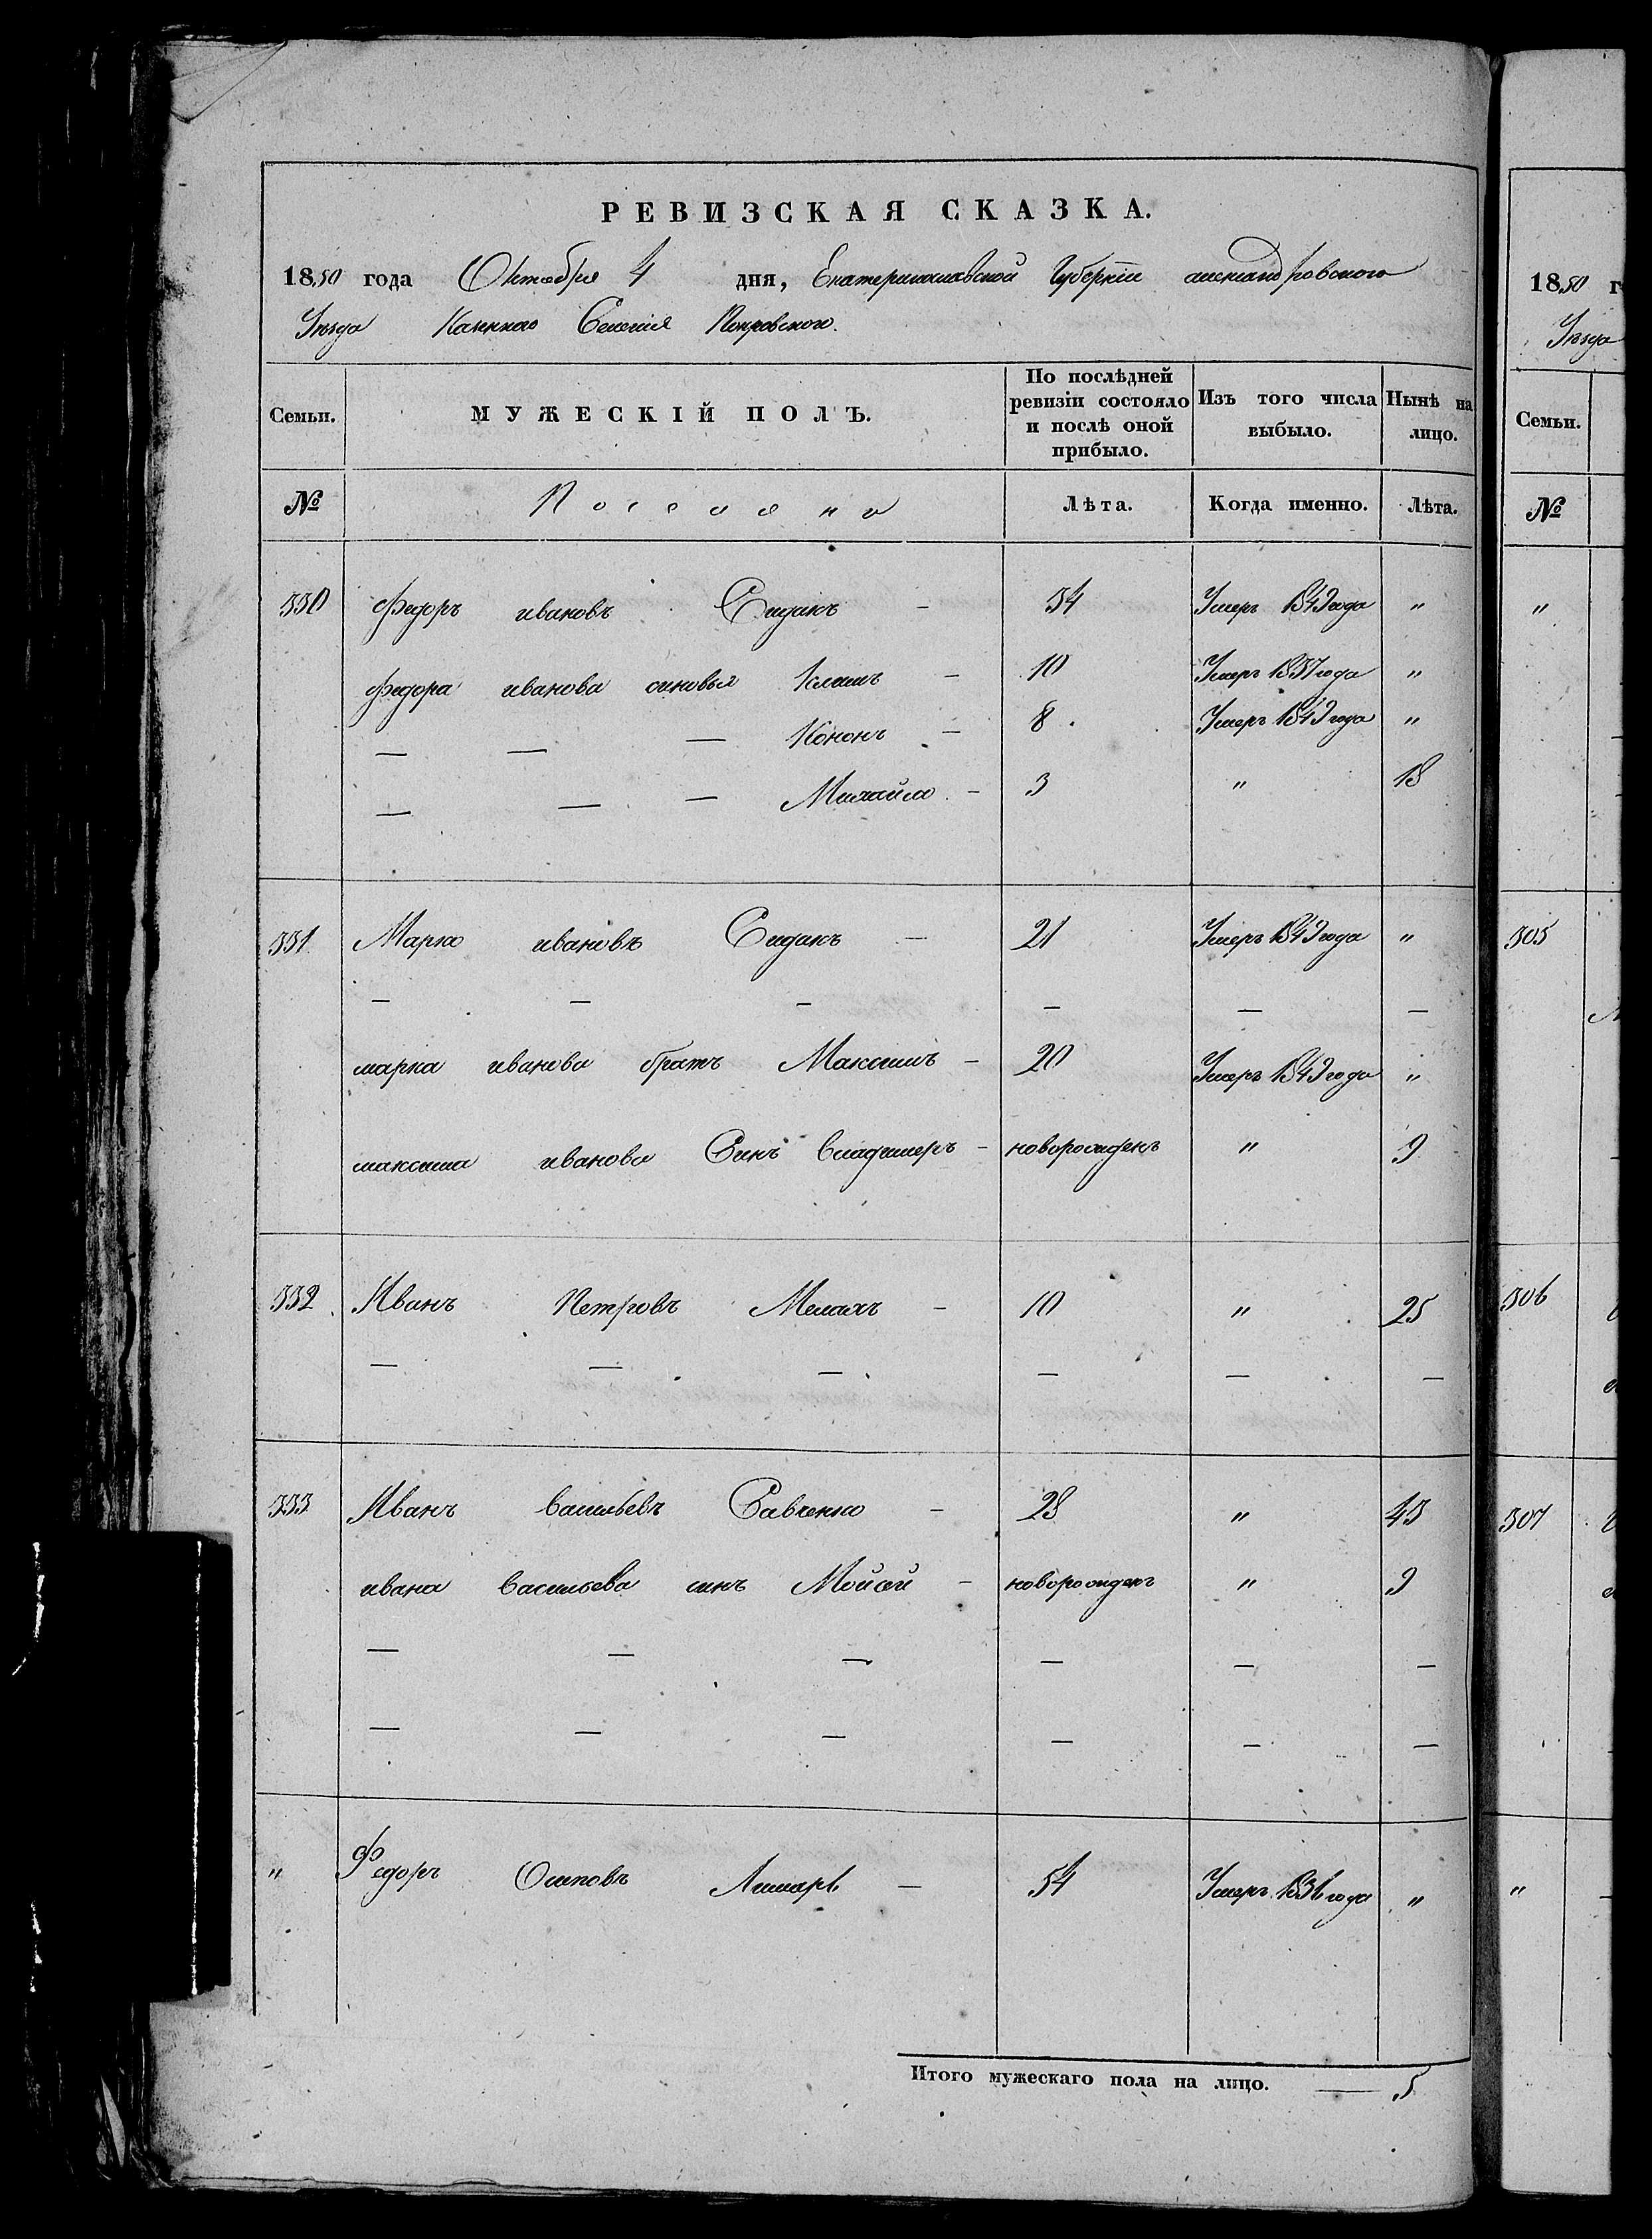 РЕВИЗСКАЯ СКАЗКА.
1850 года Октября 4 дня, Екатеринославской Губернiи александровского
Уезда Казенного Селенiя Покровского.
Семьи. МУЖЕСКІЙ ПОЛЪ. По послѣдней ревизіи состояло и послѣ оной прибыло. Изъ того числа выбыло. Нынѣ на лицо.
№ Поселяне Лѣта. Когда именно. Лѣта.
330 Федоръ ивановъ Сидакъ - 34 Умеръ 1849 года "
Федора иванова синовья Климъ - 10 Умеръ 1837 года "
— — — Кононъ - 8. Умеръ 1849 года "
— — — Михайло - 3 " 18
331 Марко ивановъ Сидакъ - 21 Умеръ 1849 года "
— — — — — —
марка иванова братъ Максимъ - 20 Умеръ 1849 года "
максима иванова Синъ Владимеръ - новорожденъ " 9
332 Иванъ Петровъ - 10 " 25
— — — — — —
333 Иванъ Васильевъ Савченко - 28 " 43
ивана Васильева синъ Мойсей - новорожденъ " 9
— — — — — —
— — — — — —
" Федоръ Осиповъ Лимарь — 54 Умеръ 1836 года "
Итого мужескаго пола на лицо. — 5
1850 г
Уезда
Семьи.
№
"
305
306
307
"